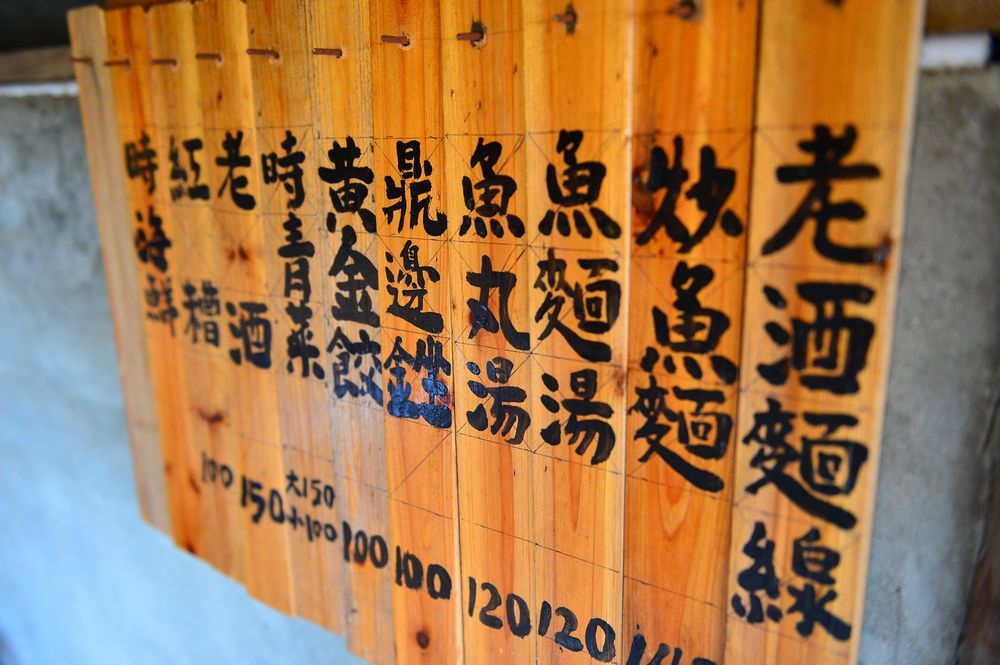 老酒麵線
炒魚麵
魚麵湯
120
魚丸湯
120
鼎邊銼
100
黃金餃
100
時青菜
大150
小100
老酒
150
紅糟
100
時海鮮